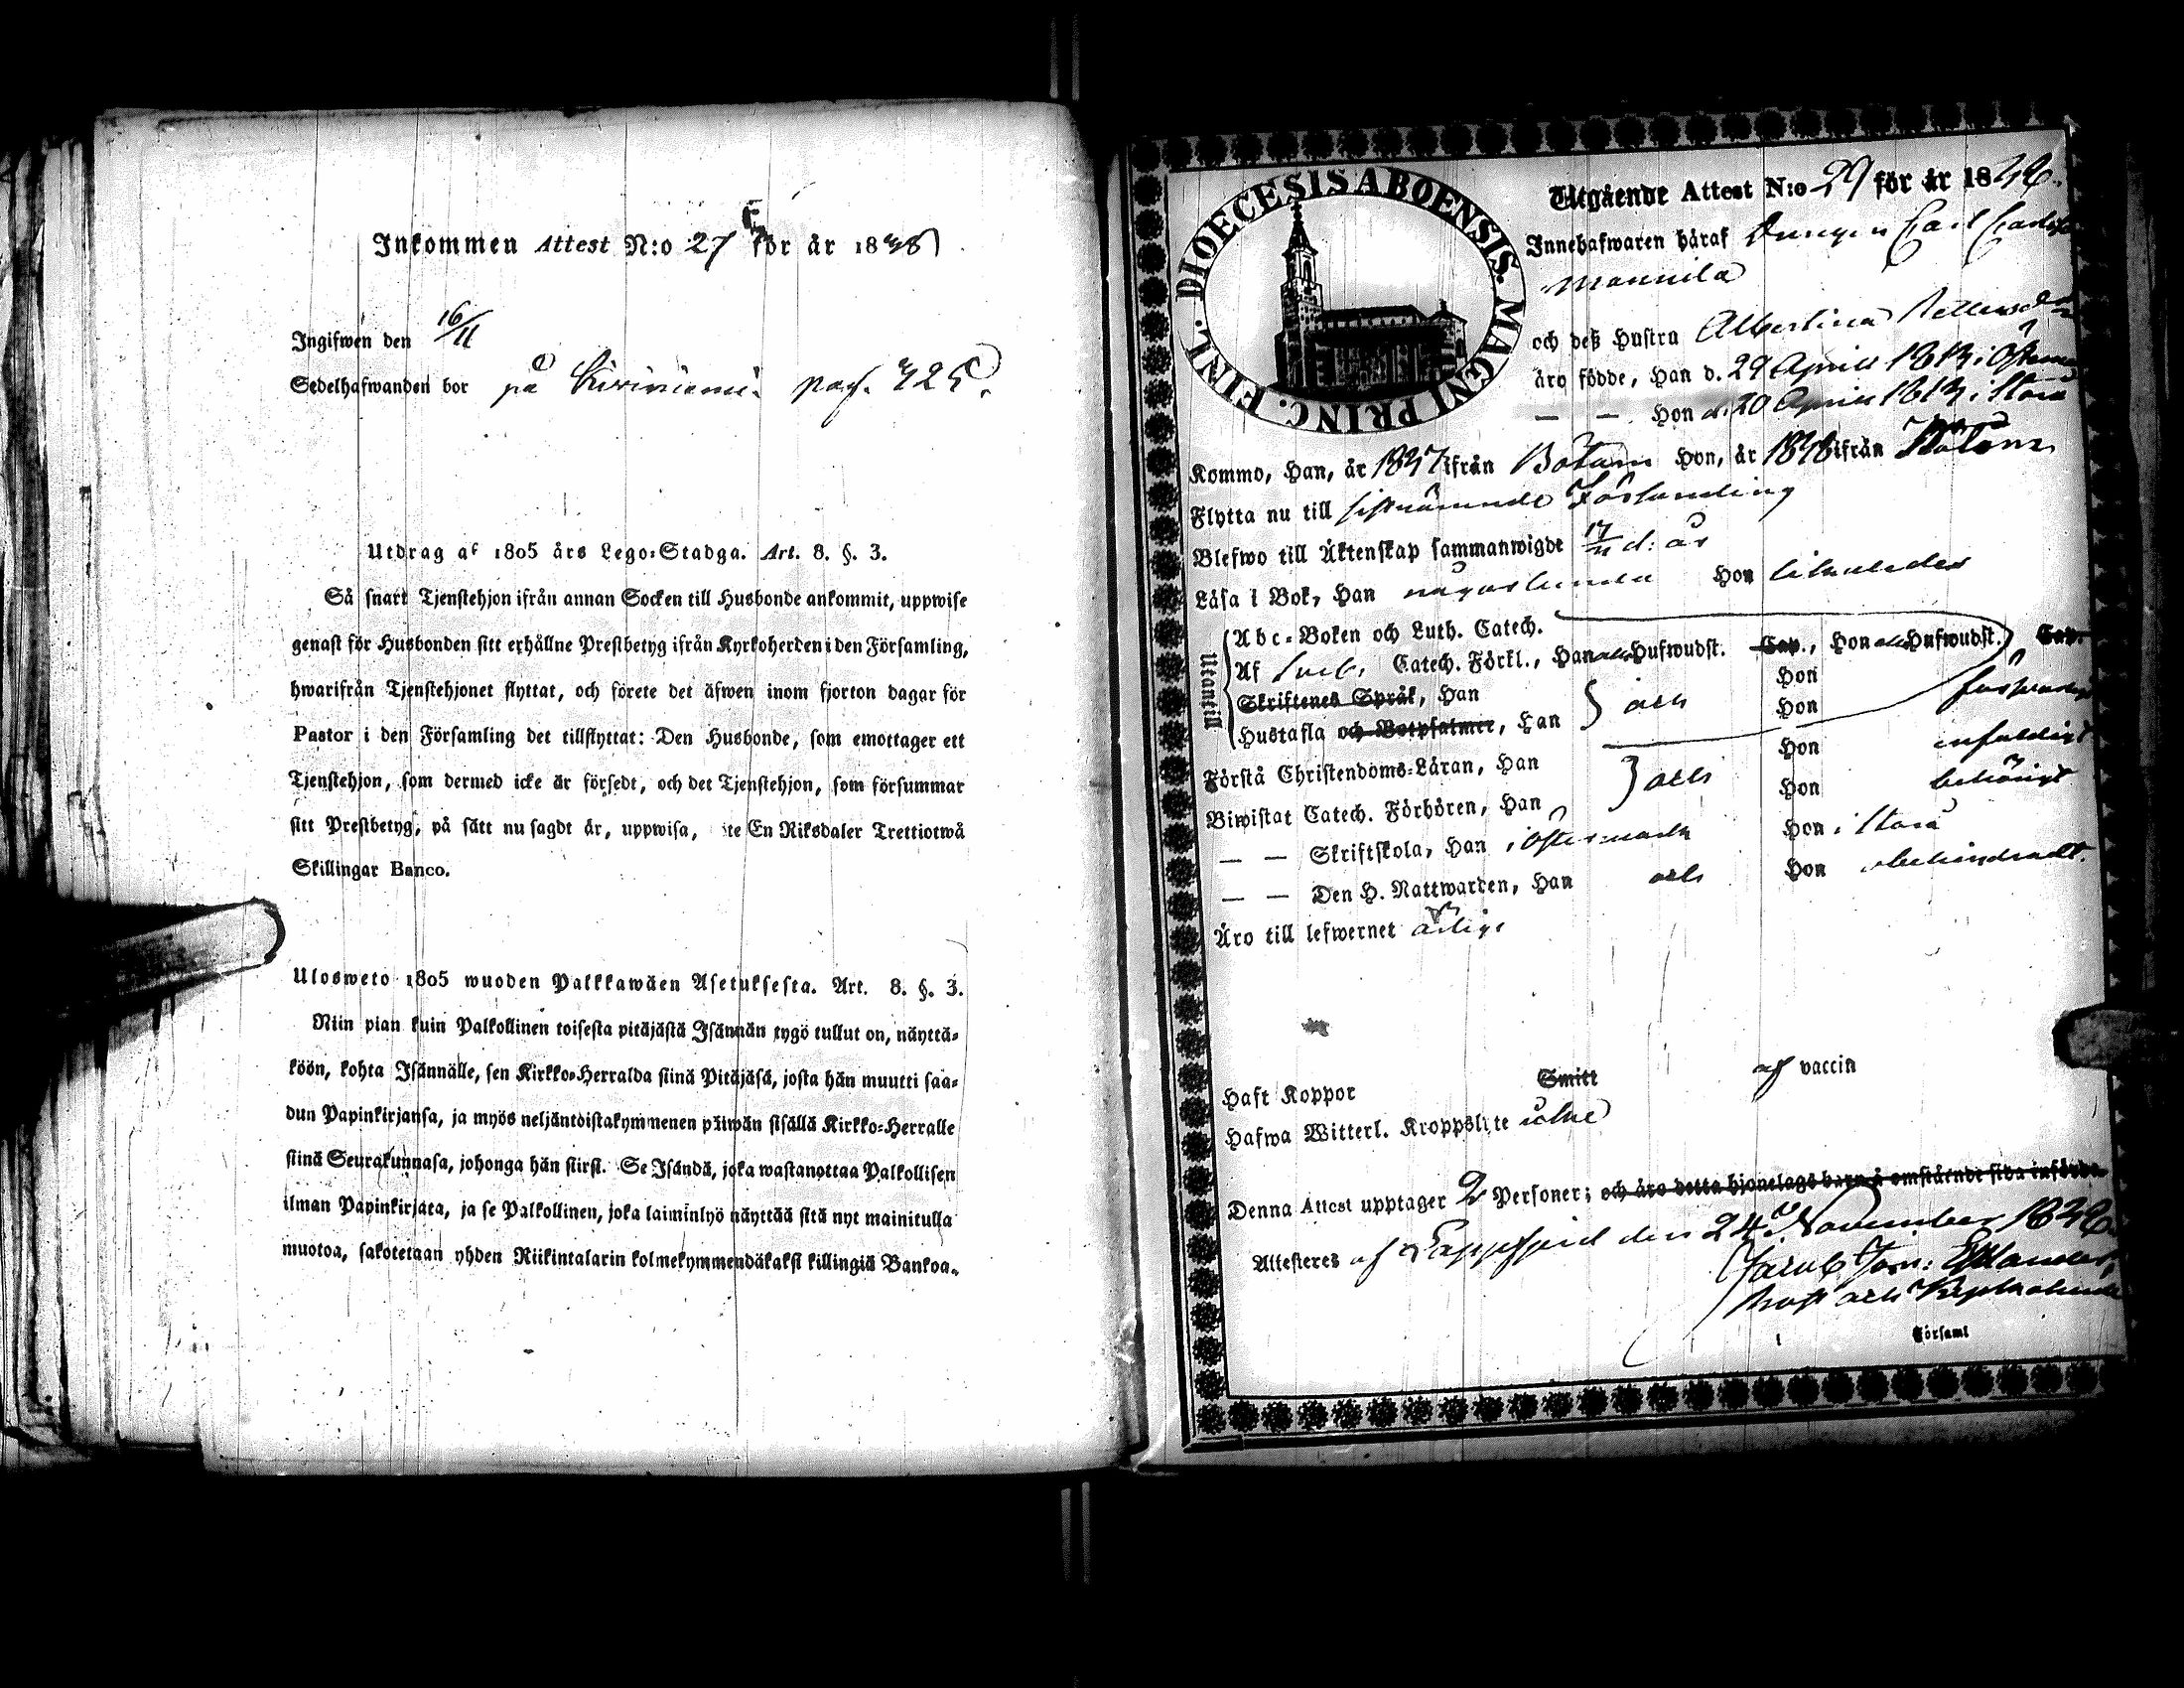 Inkommen Attest N:o 27 för år 1838
Ingifwen den 16/11
Sedelhafwanden bor på pag. 325.
Utdrag af 1805 års Lego-Stadga. Art. 8. §. 3.
Så snart Tjenstehjon ifrån annan Socken till Husbonde ankommit, uppwise
genast för Husbonden sitt erhållne Prestbetyg ifrån Kyrkoherden i den Församling,
hwarifrån Tjenstehjonet flyttat, och förete det äfwen inom fjorton dagar för
Pastor i den Församling det tillflyttat: Den Husbonde, som emottager ett
Tjenstehjon, som dermed icke är försedt, och det Tjenstehjon, som försummar
sitt Prestbetyg, på sätt nu sagdt är, uppwisa, te En Riksdaler Trettiotwå
Skillingar Banco.
Ulosweto 1805 wuoden Palkkawäen Asetuksesta. Art. 8. §. 3.
Niin pian kuin Palkollinen toisesta pitäjästä Isännän tygö tullut on, näyttä-
köön, kohta Isännälle, sen Kirkko-Herralda siinä Pitäjäsä, josta hän muutti saa-
dun Papinkirjansa, ja myös neljäntoistakymmenen päiwän sisällä Kirkko-Herralle
siinä Seurakunnasa, johonga hän siirsi. Se Isändä, joka wastanottaa Palkollisen
ilman Papinkirjata, ja se Palkollinen, joka laiminlyö näyttää sitä nyt mainitulla
muotoa, sakotetaan yhden Riikintalarin kolmekymmendäkaksi killingiä Bankoa.
DIOECESIS ABOENSIS. MAGNI PRINC. FINL.
Utgående Attest N:o 29 för år 1838.
Innehafwaren håraf Drengen Carl
Mannila
och deß Hustru Albertina
äro födde, Han d. 29 Aprill 1813 i
— — Hon d. 20 Aprill 1813 i Storå
Kommo, Han, år 1837 ifrån Bötom Hon, år 1838 ifrån
Flytta nu till sistnämnde Församling
Blefwo till Äktenskap sammanwigde d: år
Läsa i Bok, Han någorlunda Hon likaledes
Utantill
Abc-Boken och Luth. Catech.
Af Sveb. Catech. Förkl., Han alla Hufwudst. Cap., Hon alla Hufwudst. Cap.
Skriftenes Språk, Han Hon
Hustafla och Botpsalmer, Han och Hon försvarligt
Förstå Christendoms-Läran, Han Hon enfaldigt
Biwistat Catech. Förhören, Han och Hon behörigt
— — Skriftskola, Han i Östermark Hon i Storå
— — Den H. Nattwarden, Han och Hon obehindradt.
Äro till lefwernet ärlige
Haft Koppor Smitt af vaccin
Hafwa Witterl. Kroppslyte icke
Denna Attest upptager 2 Personer; och äro detta hjonelags barn å omstående sida införde.
Attesteres af Lappfjerd den 24 November 1838
Församl